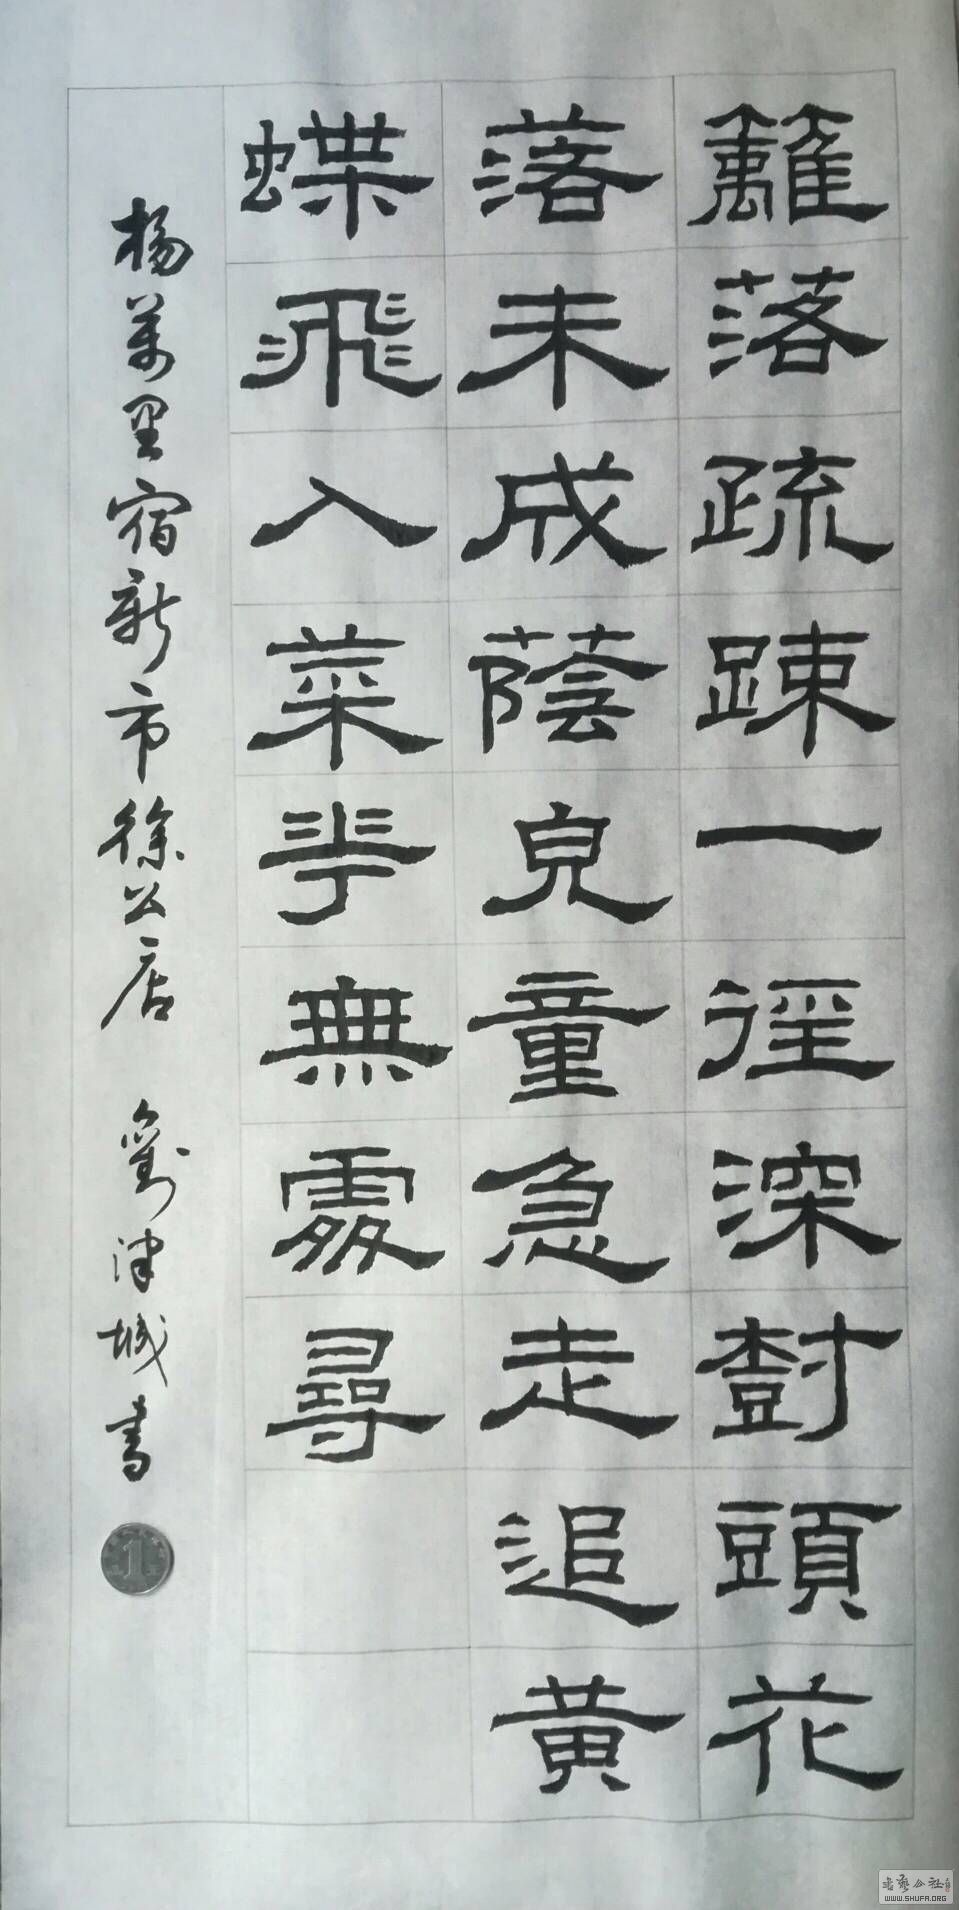 籬落疏踈一徑深樹頭花
落未成蔭兒童急走追黃
蝶飛入菜花無處尋
楊萬里宿新市徐公店 劉津城書
1
书艺公社
WWW.SHUFA.ORG